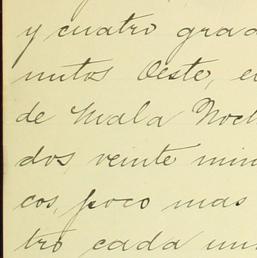 y cuatro grad
nutos Oeste, e
de Mala Noch
dos, veinte min
cos, poco mas
tro cada un